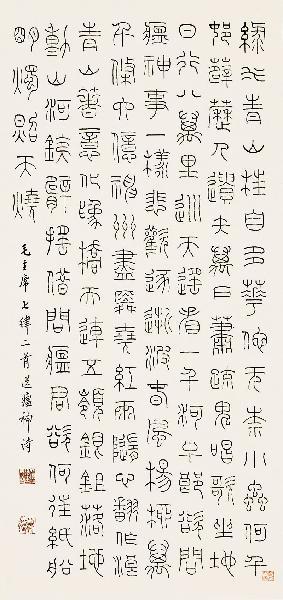 綠水青山枉自多華佗無奈小蟲何千
邨薜荔人遺矢萬戶蕭疏鬼唱歌坐地
日行八萬里巡天遙看一千河牛郎欲問
瘟神事一樣悲歡逐逝波春風楊柳萬
千條六億神州盡舜堯紅雨隨心翻作浪
青山著意化為橋天連五嶺銀鋤落地
動山河鐵臂搖借問瘟君欲何往紙船
明燭照天燒
毛主席七律二首送瘟神詩